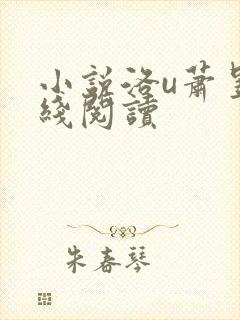 小說洛u蕭
綫閱讀
朱春琴